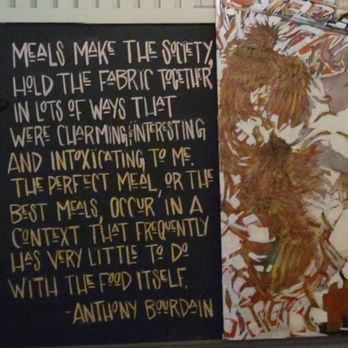 MEALS MAKE THE SOCIETY,
HOLD THE FABRIC TOGETHER
IN LOTS OF WAYS THAT
WERE CHARMING & INTERESTING
AND INTOXICATING TO ME.
THE PERFECT MEAL, OR THE
BEST MEALS, OCCUR IN A
CONTEXT THAT FREQUENTLY
HAS VERY LITTLE TO DO
WITH THE FOOD ITSELF.
-ANTHONY BOURDAIN